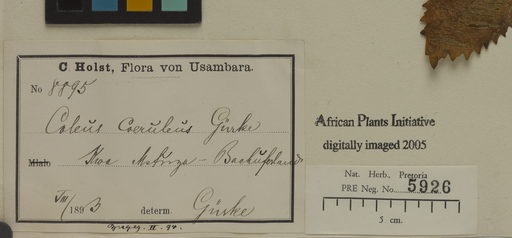 C Holst, Flora von Usambara.
No 8895
Coleus coeruleus Gürke
Mlalo Kwa Mstuza - Bachuferland
VIII/1893 determ. Gürke
II. 94.
African Plants Initiative
digitally imaged 2005
Nat. Herb., Pretoria
PRE Neg. No. 5926
5 cm.